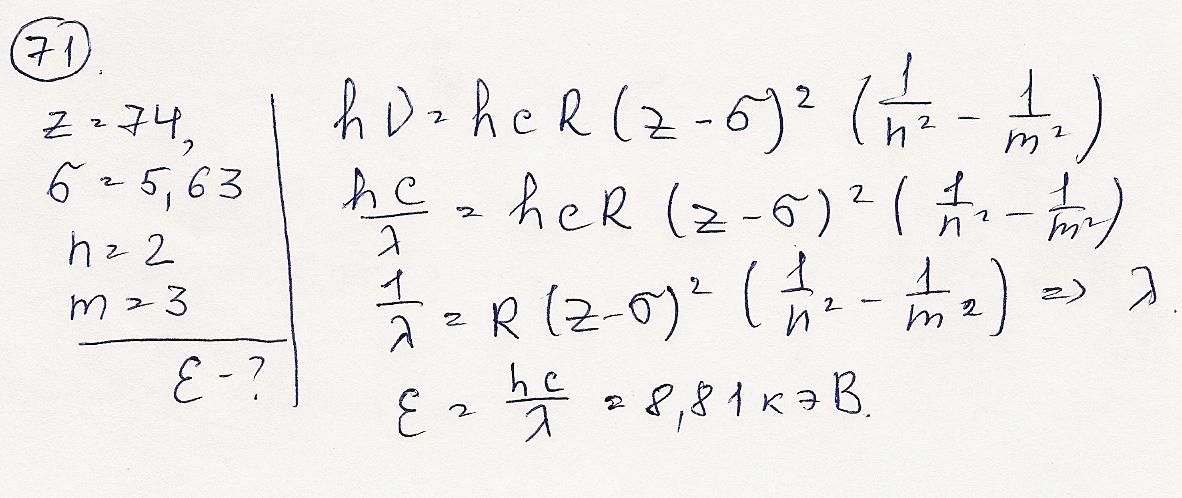 71.
z = 74,
σ = 5,63
n = 2
m = 3
ε - ?
hν = hcR (z - σ)² (1/n² - 1/m²)
hc/λ = hcR (z - σ)² (1/n² - 1/m²)
1/λ = R (z - σ)² (1/n² - 1/m²) => λ.
ε = hc/λ = 8,81 кэВ.